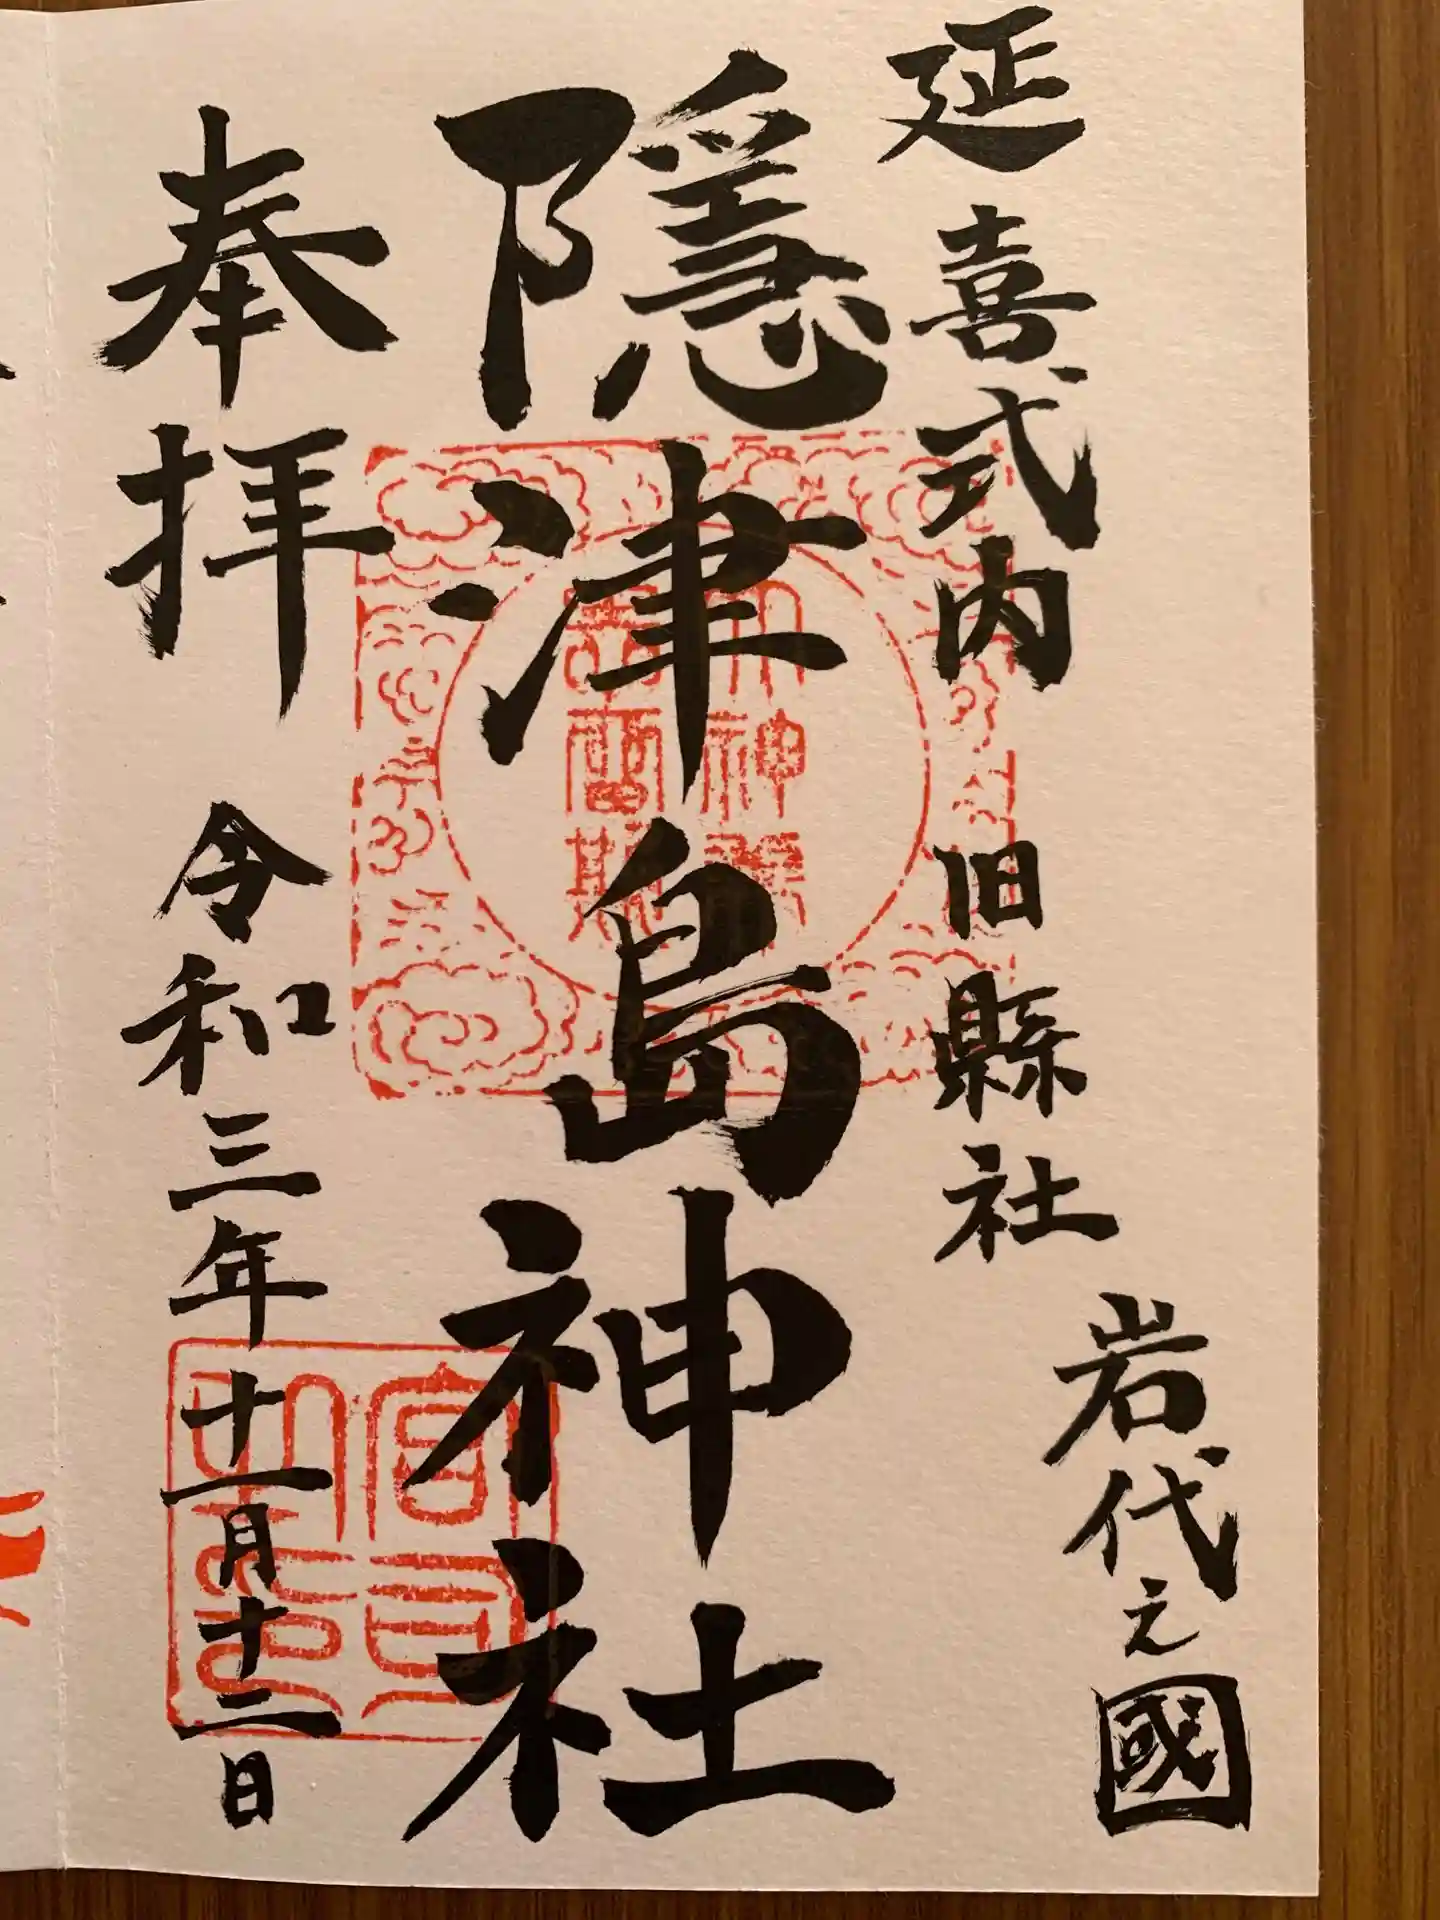 岩代之國
延喜式内 旧縣社
隠津島神社
奉拝 令和三年十一月十二日
宮司之印